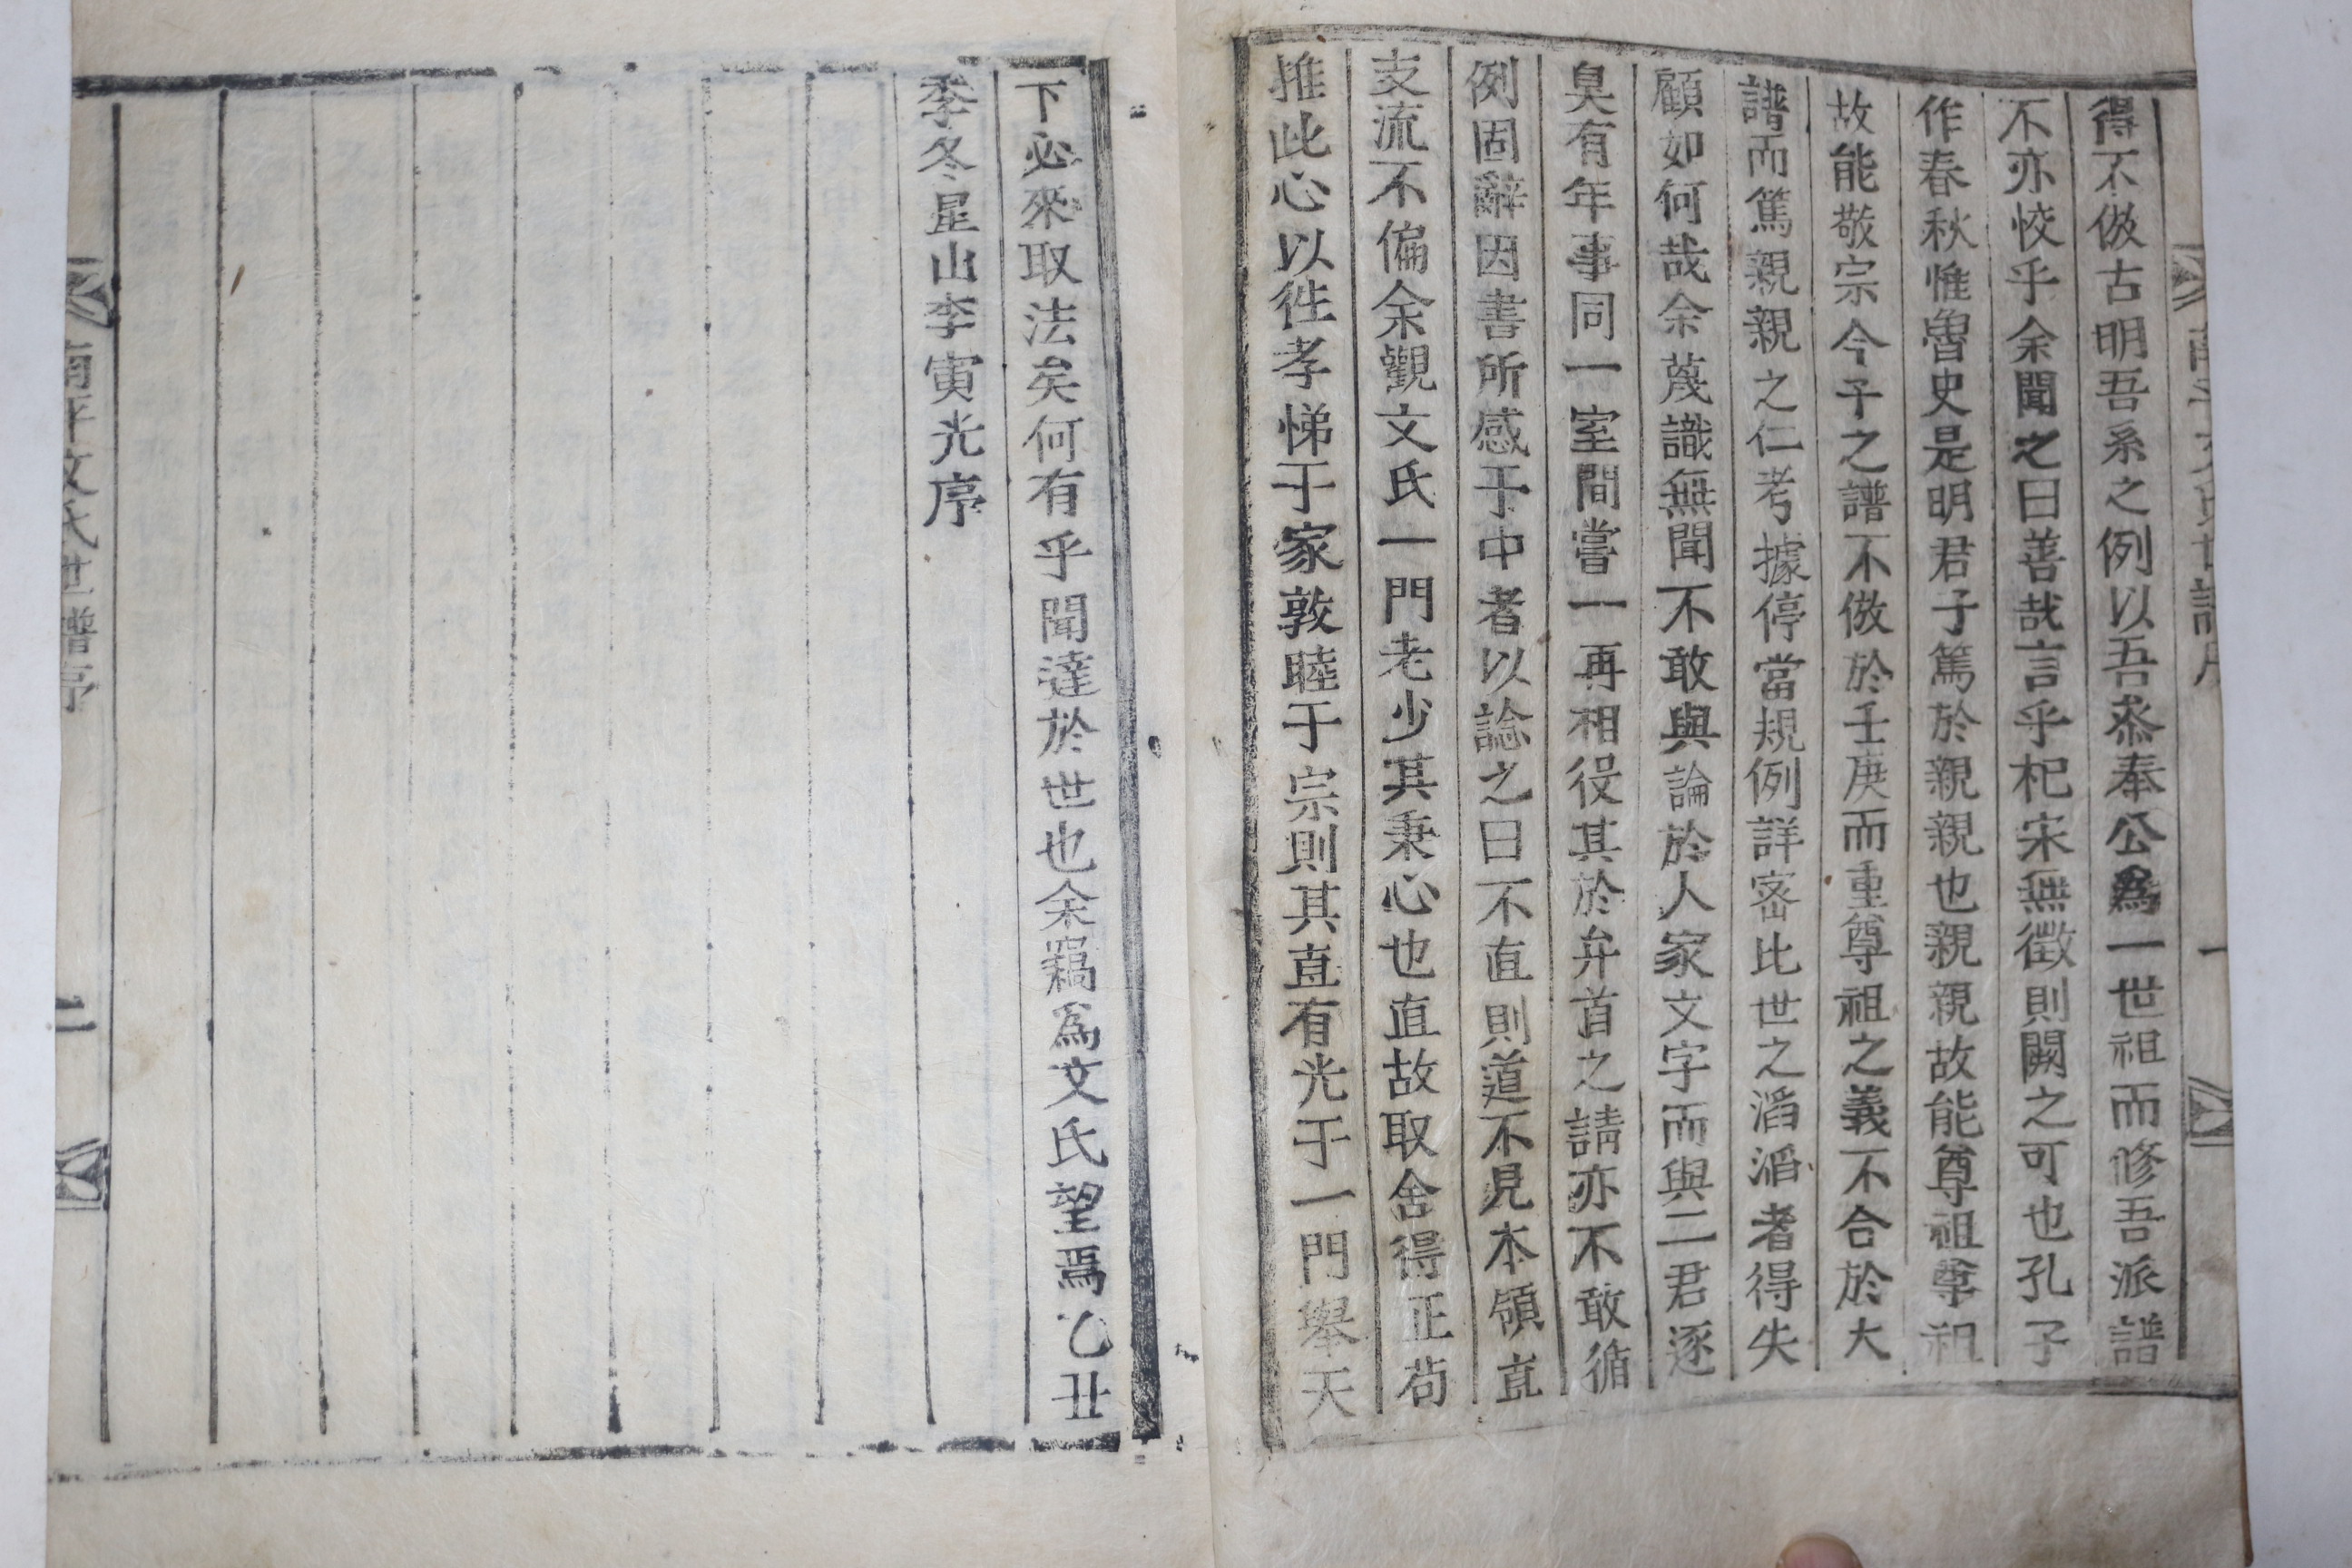 得不倣古明吾系之例以吾叅奉公爲一世祖而修吾派譜
不亦恔乎余聞之曰善哉言乎杞宋無徵則闕之可也孔子
作春秋惟魯史是明君子篤於親親也親親故能尊祖尊祖
故能敬宗今予之譜不倣於壬庚而重尊祖之義不合於大
譜而篤親親之仁考據停當規例詳密比世之滔滔者得失
顧如何哉余蔑識無聞不敢與論於人家文字而與二君逐
臭有年事同一室間嘗一再相役其於弁首之請亦不敢循
例固辭因書所感于中者以諗之曰不直則道不見本領直
支流不偏余觀文氏一門老少其秉心也直故取舍得正苟
推此心以徃孝悌于家敦睦于宗則其直有光于一門擧天
下必來取法矣何有乎聞達於世也余竊爲文氏望焉乙丑
季冬星山李寅光序
南平文氏世譜序
二